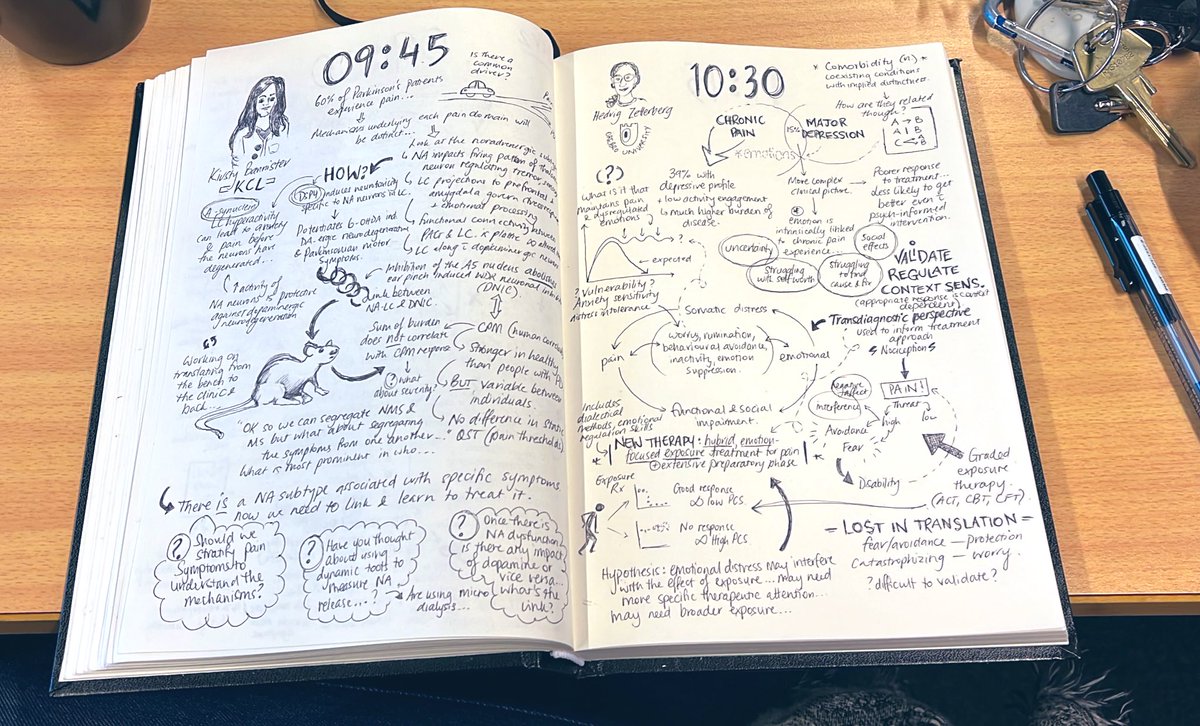 09:45
Is there a
common
driver?
60% of Parkinson's patients
experience pain...
Mechanisms underlying each pain domain will
be distinct...
Kirsty Bannister
=KCL=
HOW?
Look at the noradrenergic
NA impacts firing pattern of
neuron regulating tremor,
LC projections to prefrontal &
amygdala govern
& emotional processing
functional connectivity between
PAG & LC.
LC along c̄ dopaminergic
α-synuclein
LC hyperactivity
can lead to anxiety
& pain before
the neurons have
degenerated...
DSP4
induces neurotoxicity
specific to NA neurons in LC.
Potentiates 6-OHDA ind.
DA.ergic neurodegeneration
& Parkinsonian motor
symptoms.
↑ activity of
NA neurons is protective
against dopaminergic
neurodegeneration
Inhibition of the A5 nucleus abolishes
ear pinch induced WDR neuronal
(DNIC).
Link between
NA-LC & DNIC.
Sum of burden
does not correlate
with CPM response
CPM (human
Stronger in healthy
than people with PD
? what
about severity?
BUT variable between
individuals.
No difference in static
QST (pain thresholds)
Working on
translating from
the bench to
the clinic &
back...
"OK so we can segregate NMS &
MS but what about segregating
the symptoms from one another..."
What is most prominent in who...
There is a NA subtype associated with specific symptoms
now we need to link & learn to treat it.
? Should we
stratify pain
symptoms to
understand the
mechanisms?
? Have you thought
about using
dynamic tools to
measure NA
release...?
Are using micro
dialysis...
? Once there is
NA dysfunction
is there any impact
of dopamine or
vice versa...
What's the
link?
10:30
Hedvig Zetterberg
ÖREBRO UNIVERSITY
* Comorbidity (n) *
coexisting conditions
with implied distinctness.
How are they related
though?
A → B
A | B
C < A B
CHRONIC
PAIN
MAJOR
DEPRESSION
*emotions
(?)
What is it that
maintains pain
& dysregulated
emotions
39% with
depressive profile
↓ low activity engagement
↳ much higher burden of
disease.
More complex
clinical picture.
Poorer response
to treatment...
less likely to get
better even c̄
psych-informed
intervention.
emotion is
intrinsically linked
to chronic pain
experience...
uncertainty
Social
effects
Struggling
with self worth
Struggling
to find
cause & fix
?
expected
? Vulnerability?
Anxiety sensitivity
distress intolerance
VALIDATE
REGULATE
CONTEXT SENS.
(appropriate response is context
dependent)
Transdiagnostic perspective
used to inform treatment
approach
Somatic distress
pain
worry, rumination,
behavioural avoidance,
inactivity, emotion
suppression.
emotional
functional & social
impairment.
Nociception
PAIN!
Threat
high
low
negative
affect
interference
Avoidance
Fear
Disability
Graded
exposure
therapy.
(ACT, CBT, CFT)
Includes
dialectical
methods, emotional
regulation skills
* NEW THERAPY: hybrid, emotion-
focused exposure treatment for pain
+ extensive preparatory phase *
Exposure
Rx
Good response
low PCS
No response
High PCS
Hypothesis: emotional distress may interfere
with the effect of exposure... may need
more specific therapeutic attention...
may need broader exposure...
= LOST IN TRANSLATION =
fear/avoidance — protection
Catastrophizing — worry.
? difficult to validate?